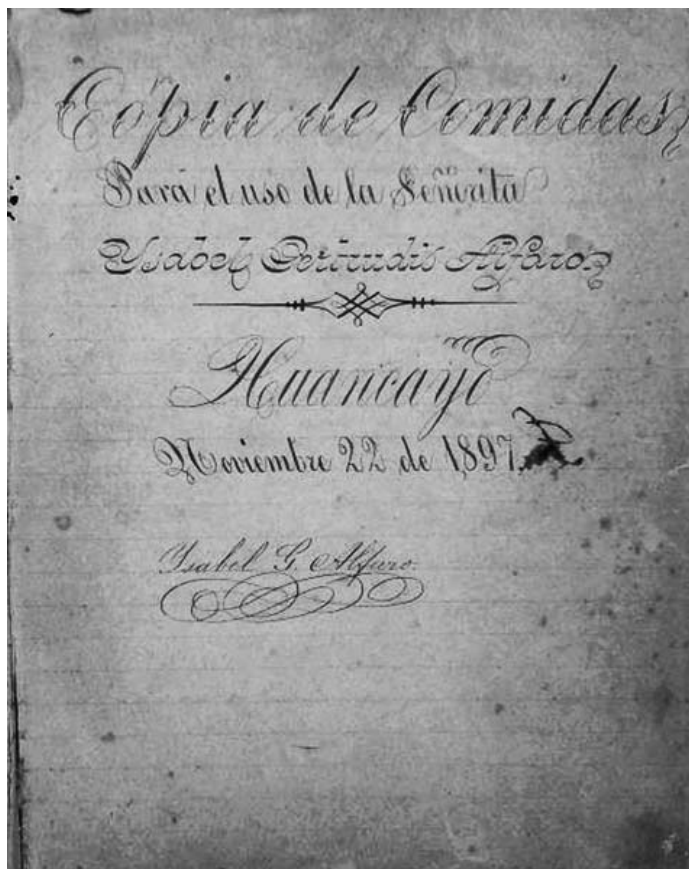 Cópia de Comidas
Para el uso de la Señorita
Ysabel Gertrudis Alfaro
Huancayo
Noviembre 22 de 1897.
Ysabel G. Alfaro.